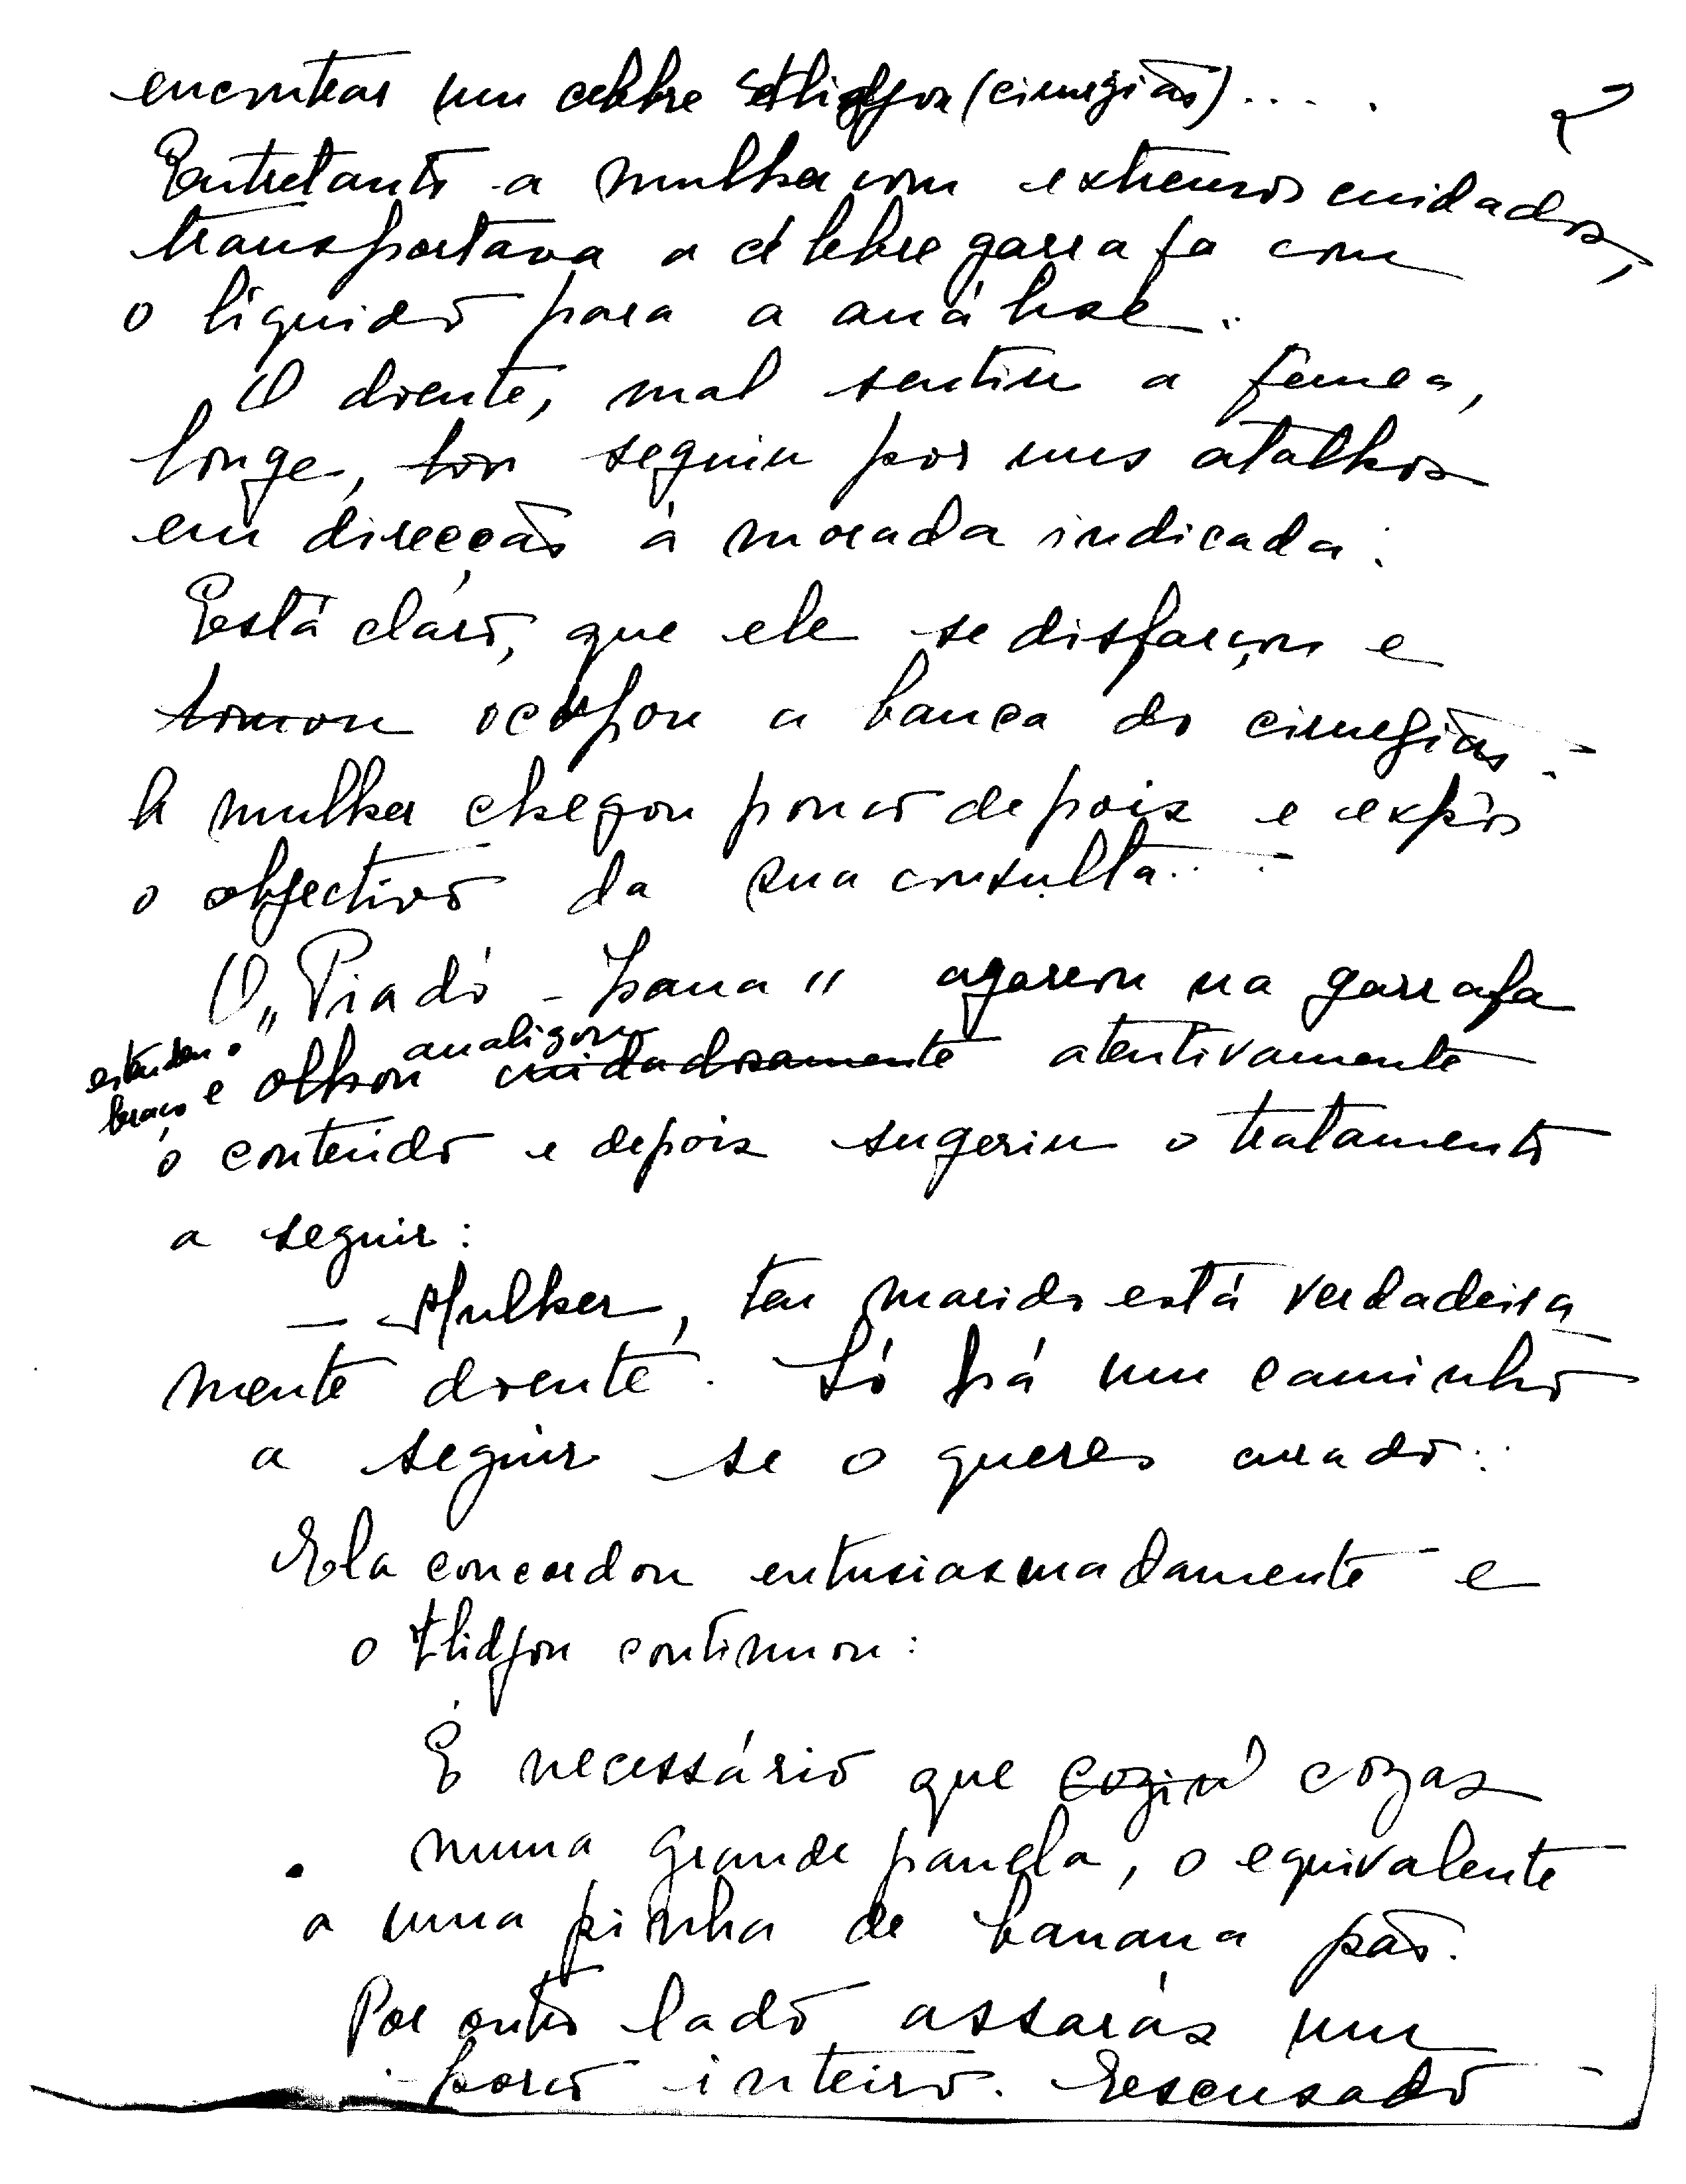 encontrar um célebre (cirurgião)....
2
Entretanto a mulher com extremos cuidados,
transportava a célebre garrafa com
o líquido para a análise.
O doente, mal sentiu a femea,
longe, tou seguiu por uns atalhos
em direcção à morada indicada.
Está claro, que ele se disfarçou e
tomou ocupou a banca do cirurgião.
A mulher chegou pouco depois e expôs
o objectivo da sua consulta...
O "Piadó-pana" agarrou na garrafa
estendeu o braço e olhou analizou cuidadosamente atentivamente
o conteúdo e depois sugeriu o tratamento
a seguir:
— Mulher, teu marido está verdadeira
mente doente. Só há um caminho
a seguir se o queres curado..
Ela concordou entusiasmadamente e
o continuou:
É necessário que cozin cozas
numa grande panela, o equivalente
a uma pinha de banana pão.
Por outro lado assarás um
porco inteiro. Escusado